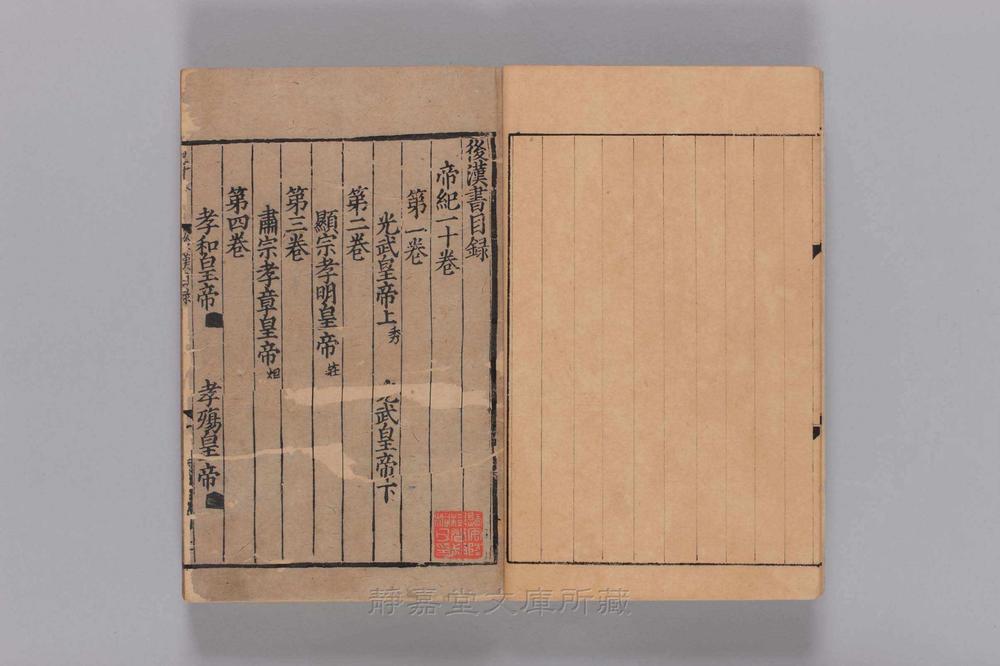 後漢書目録
帝紀一十卷
第一卷
光武皇帝上秀
光武皇帝下
第二卷
顯宗孝明皇帝莊
第三卷
肅宗孝章皇帝炟
第四卷
孝和皇帝
孝殤皇帝
靜嘉堂文庫所藏